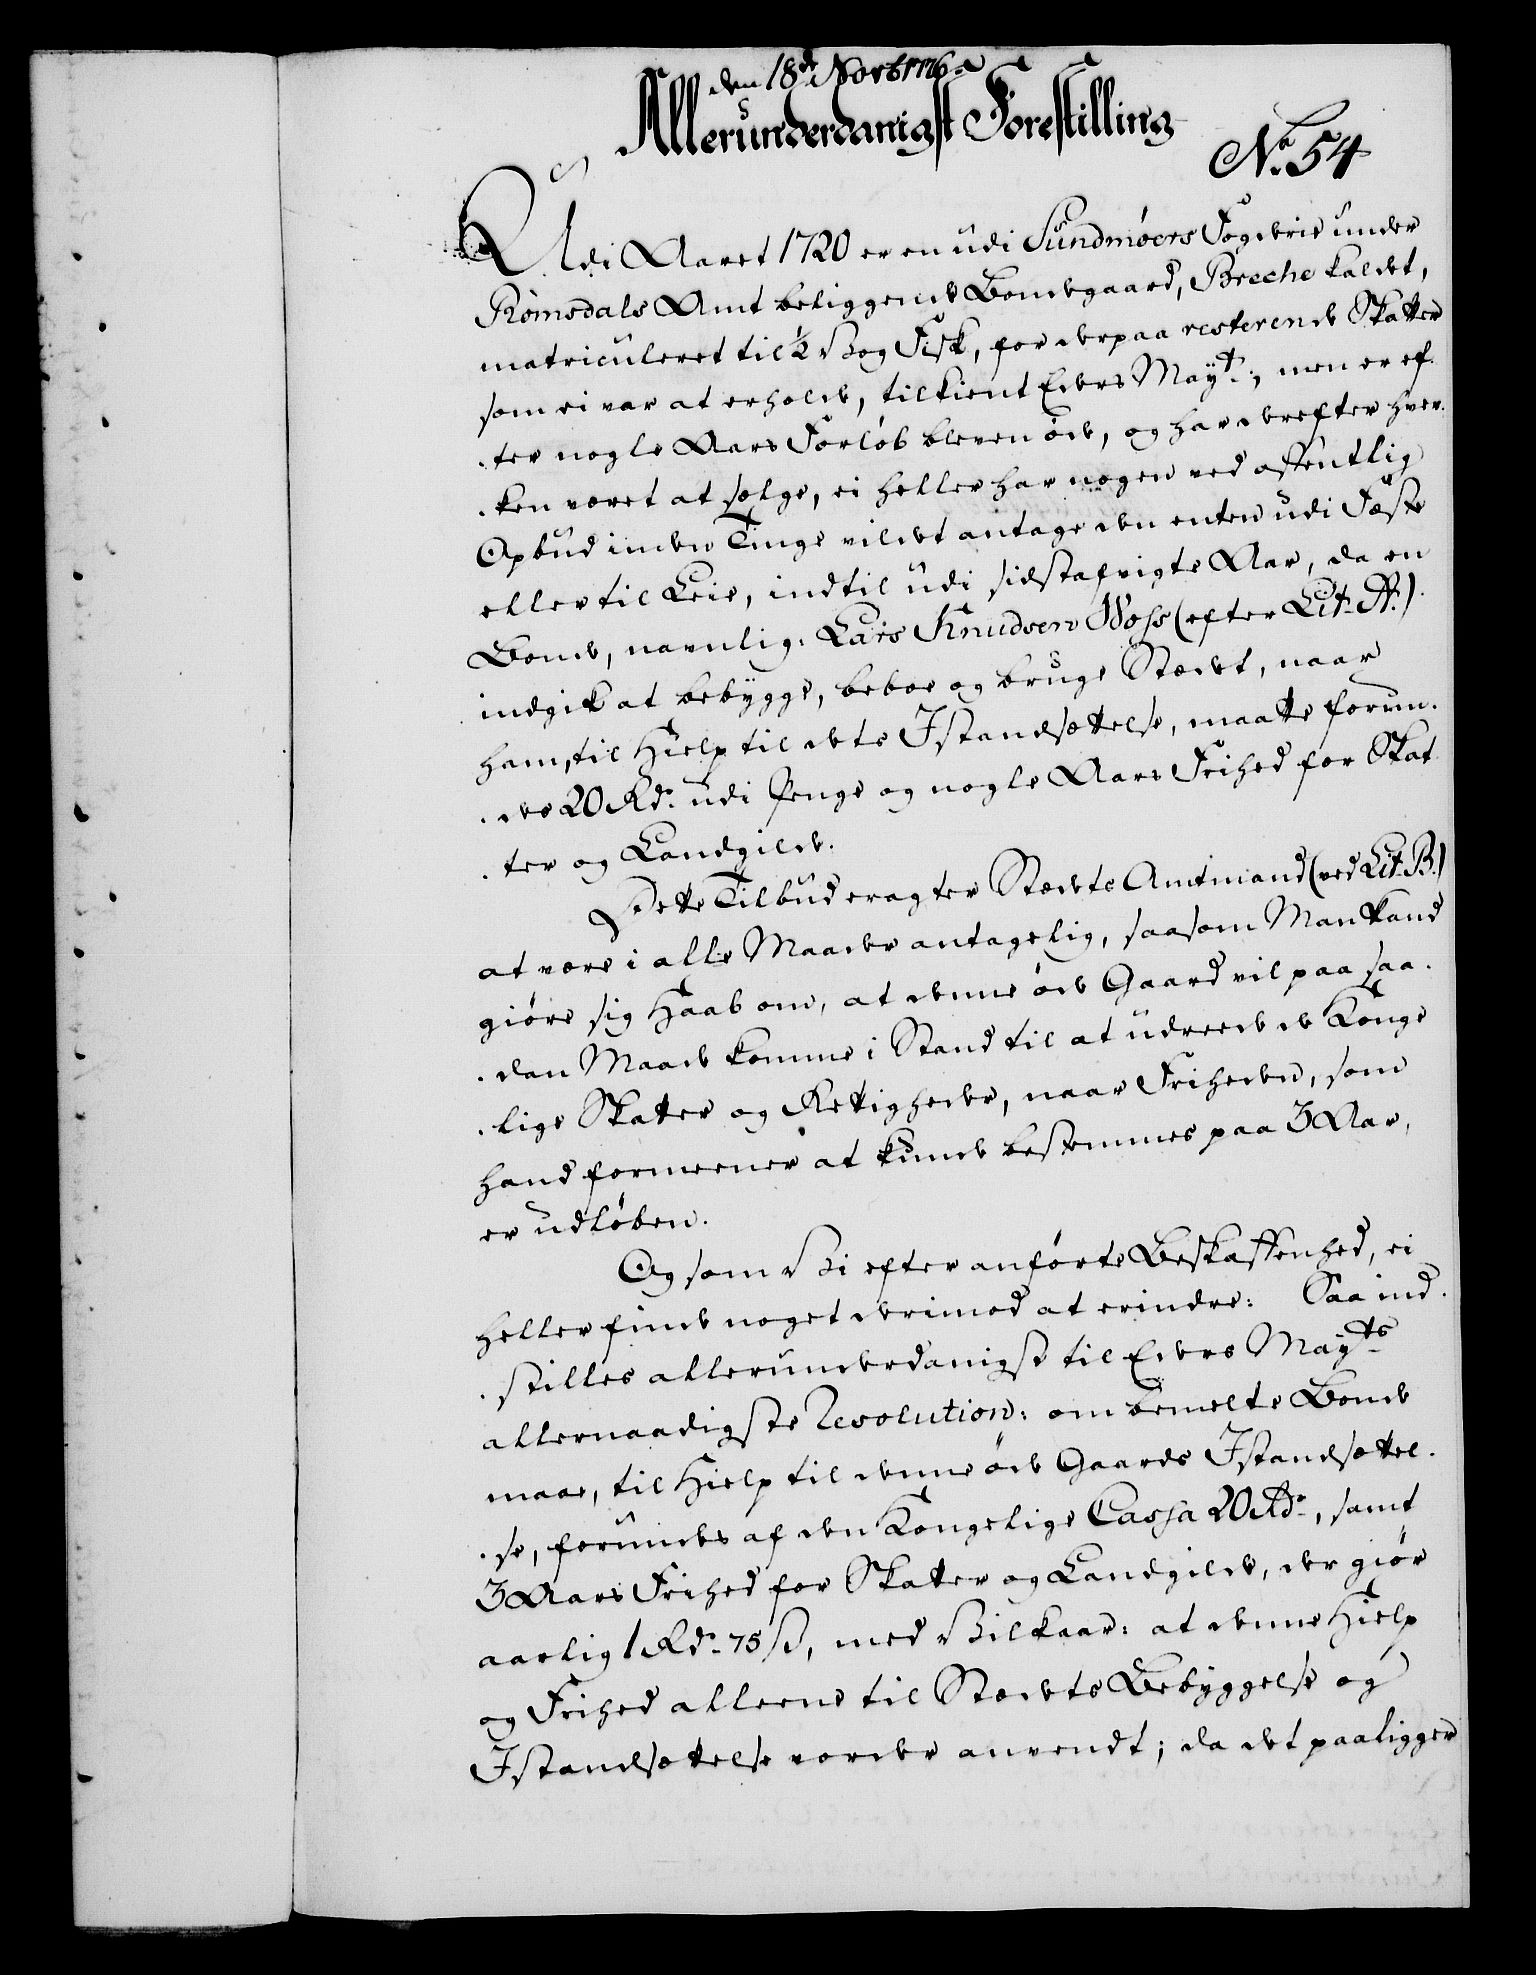 den 18de Novbr 176
Allerunderdanigst Forestilling
No. 54
Udi Aaret 1720 er en udi Sundmøers Fogderie under
Romsdals Amt beliggende Bondegaard, Breche kaldet,
matriculeret til ½ Vog Fisk, for derpaa resterende Skatter
som ei var at erholde, tilkient Eders Mayt:, men er ef-
ter nogle Aars Forløb bleven øde, og har derefter hver-
ken været at sælge, ei heller har nogen ved offentlig
Opbud inden Tinge vildet antage den enten udi Fæste
eller til Leie, indtil udi sidstafvigte Aar, da en
Bonde, navnlig: Lars Knudsen Woss (efter Lit. A.)
indgik at bebygge, beboe og bruge Stædet, naar
ham, til Hielp til dets Istandsættelse, maatte forun-
des 20 Rd. udi Penge og nogle Aars Frihed for Skat-
ter og Landgilde.
Dette Tilbud eragter Stædets Amtmand (ved Lit. B.)
at være i alle Maader antagelig, saasom Man kand
giøre sig Haab om, at denne øde Gaard vil paa saa-
dan Maade komme i Stand til at udreede de Konge-
lige Skatter og Rettigheder, naar Friheden, som
hand formeener at kunde bestemmes paa 3 Aar,
er udløben.
Og som Vi efter anførte Beskaffenhed, ei
heller finde noget derimod at erindre: Saa ind-
stilles allerunderdanigst til Eders Mayts
allernaadigste Resolution: om bemelte Bonde
maae, til Hielp til denne øde Gaards Istandsættel-
se, forundes af den Kongelige Cassa 20 Rd., samt
3 Aars Frihed for Skatter og Landgilde, der giør
aarlig 1 Rd. 75 s, med Vilkaar: at denne Hielp
og Frihed alleene til Stædets Bebyggelse og
Istandsættelse vorder anvendt; da det paaligger